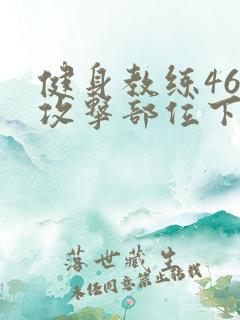 健身教练46
攻擊部位下
落世藏生
未经同意禁止转载